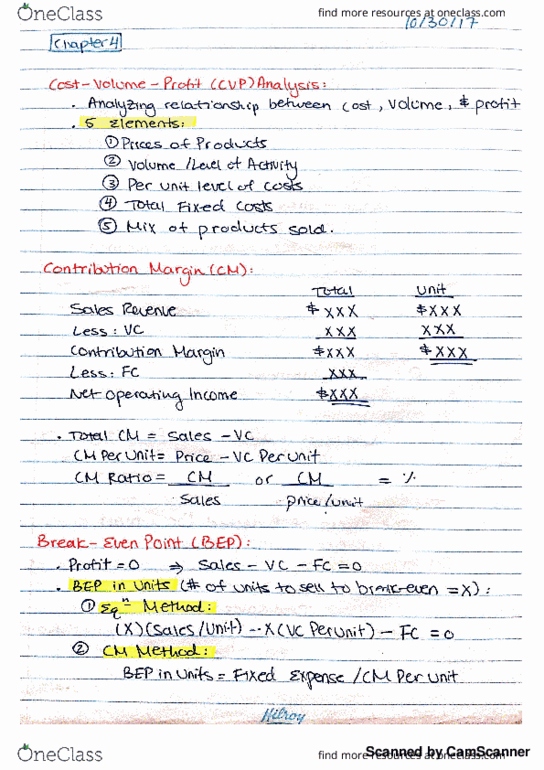 OneClass
find more resources at oneclass.com
10/30/17
Chapter 4
Cost-Volume-Profit (CVP) Analysis:
· Analyzing relationship between cost, volume, & profit
· 5 Elements:
① Prices of Products
② Volume /Level of Activity
③ Per unit level of costs
④ Total Fixed Costs
⑤ Mix of products sold.
Contribution Margin (CM):
Total Unit
Sales Revenue $XXX $XXX
Less: VC XXX XXX
Contribution Margin $XXX $XXX
Less: FC XXX
Net Operating Income $XXX
· Total CM = Sales - VC
CM Per Unit = Price - VC Per Unit
CM Ratio = CM or CM = %
Sales price/unit
Break-Even Point (BEP):
· Profit = 0 ⇒ Sales - VC - FC = 0
· BEP in Units (# of units to sell to break-even = X):
① Eqⁿ Method:
(X)(Sales/Unit) - X(VC Per Unit) - FC = 0
② CM Method:
BEP in Units = Fixed Expense / CM Per Unit
Hilroy
Scanned by CamScanner
OneClass
find more resources at oneclass.com